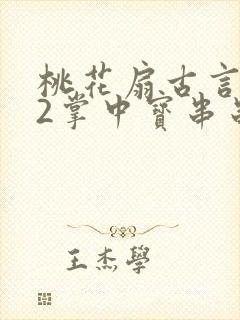 桃花扇古言
2掌中寶串
王杰學